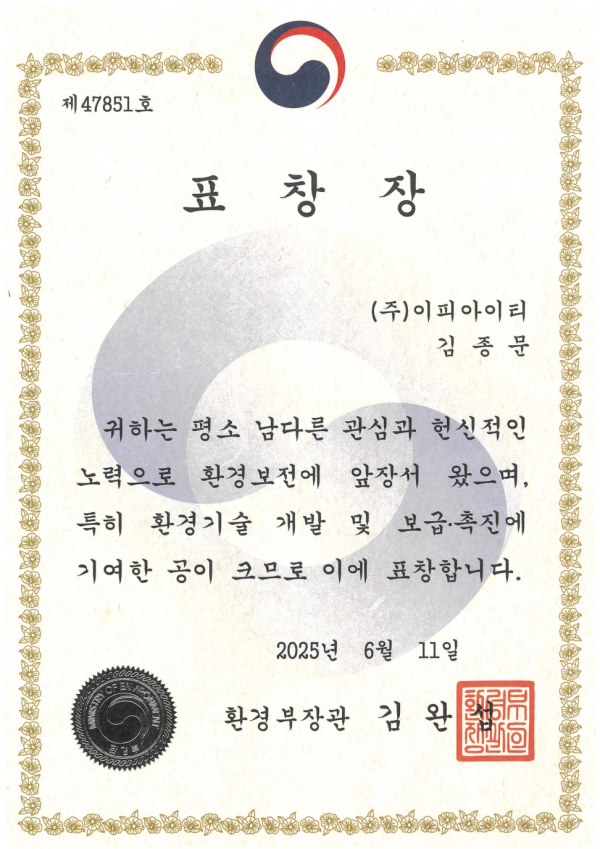 제47851호
표 창 장
(주)이피아이티
김 종 문
귀하는 평소 남다른 관심과 헌신적인
노력으로 환경보전에 앞장서 왔으며,
특히 환경기술 개발 및 보급·촉진에
기여한 공이 크므로 이에 표창합니다.
2025년 6월 11일
환경부장관 김 완 섭
MINISTRY OF ENVIRONMENT